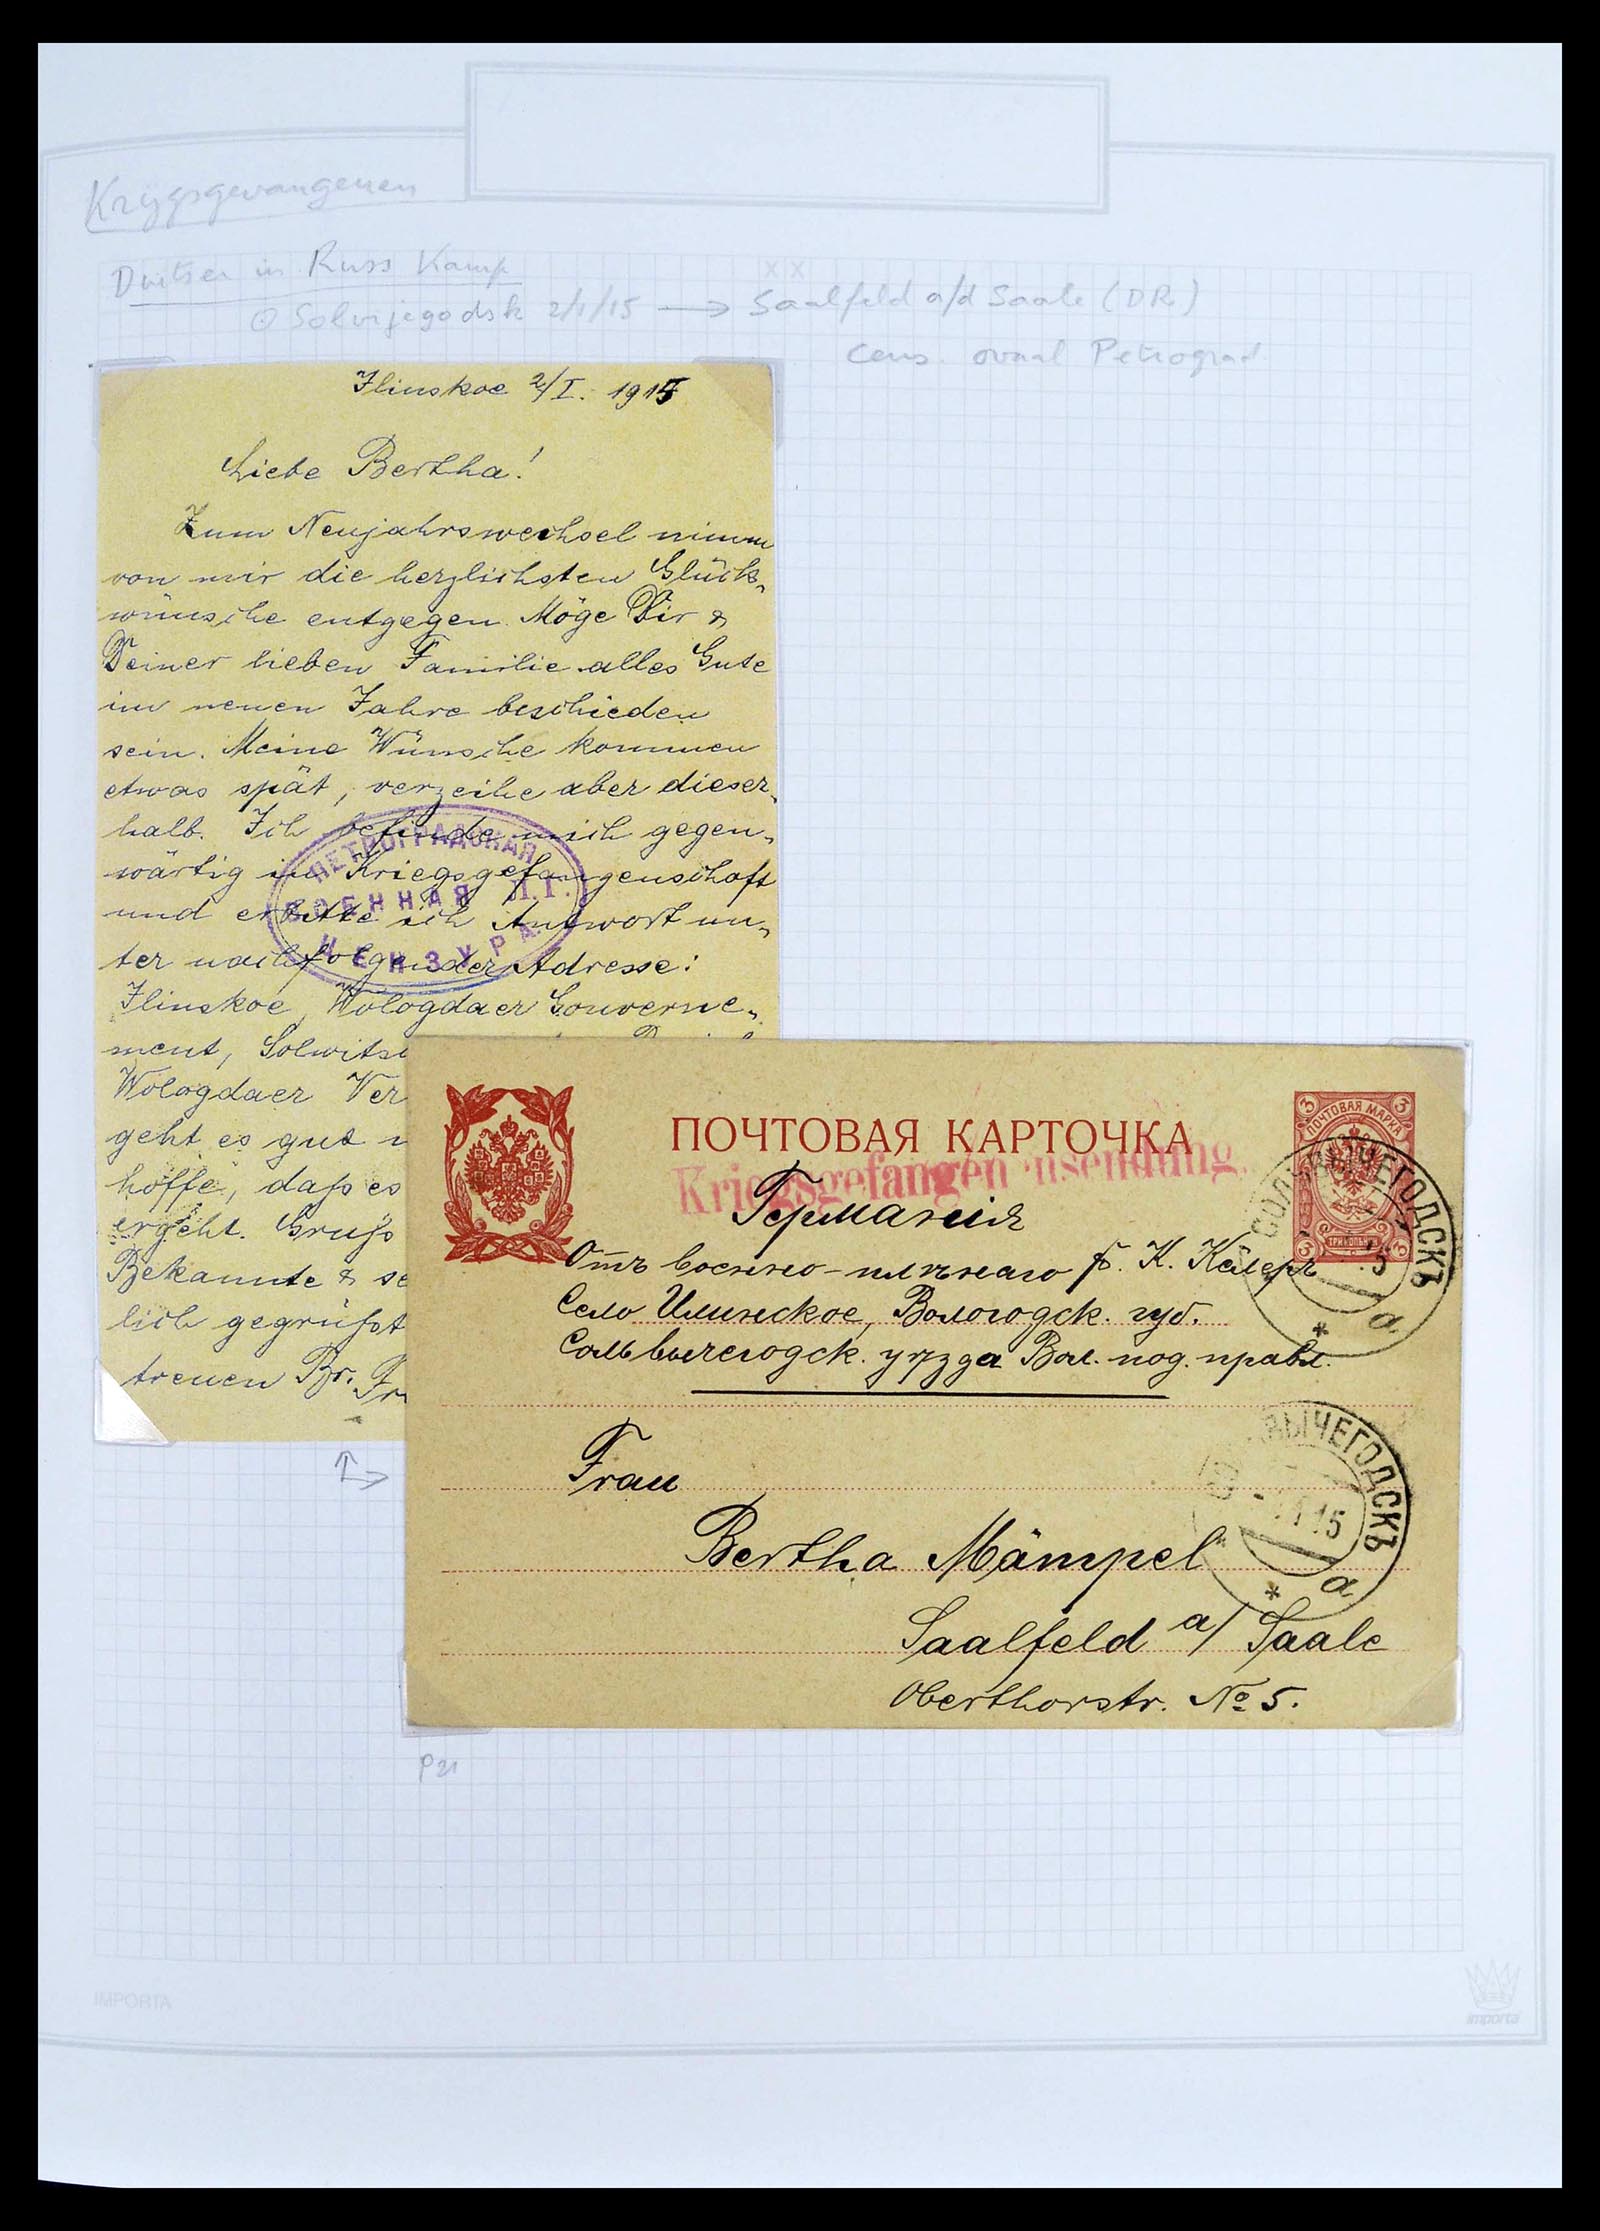 Krijgsgevangenen
Duitser in Russ Kamp
⊙ Solvijegodsk 2/1/15 → Saalfeld a/d Saale (DR)
xx
cens. ovaal Petrograd
Ilinskoe 2/I. 1915
Liebe Bertha!
Zum Neujahrswechsel nimm
von mir die herzlichsten Glück-
wünsche entgegen. Möge Dir &
Deiner lieben Familie alles Gute
im neuen Jahre beschieden
sein. Meine Wünsche kommen
etwas spät, verzeihe aber dieser-
halb. Ich befinde mich gegen-
wärtig in Kriegsgefangenschaft
und erbitte ich Antwort un-
ter nachfolgender Adresse:
Ilinskoe, Wologdaer Gouverne-
ment, Solwitsc
Wologdaer Ver
geht es gut
hoffe, daß es
ergeht. Gruß
Bekannte & se
lich gegrüßt
treuen Br. Fr
ПЕТРОГРАДСКАЯ
ВОЕННАЯ П.Г.
ЦЕНЗУРА
ПОЧТОВАЯ КАРТОЧКА
Kriegsgefangen nsendung.
3 ПОЧТОВАЯ МАРКА 3
3 ТРИ КОПЕЙКИ 3
Германія
Отъ военно-плѣннаго Ф. К. Кёлеръ
Село Илинское, Вологодск. губ.
Сольвычегодск. уѣзда Вол. под. правл.
СОЛЬВЫЧЕГОДСКЪ
15
* а
Frau
Bertha Mämpel
Saalfeld a/ Saale
Oberthorstr. № 5.
ВЫЧЕГОДСКЪ
1 15
* а
P21
IMPORTA
importa